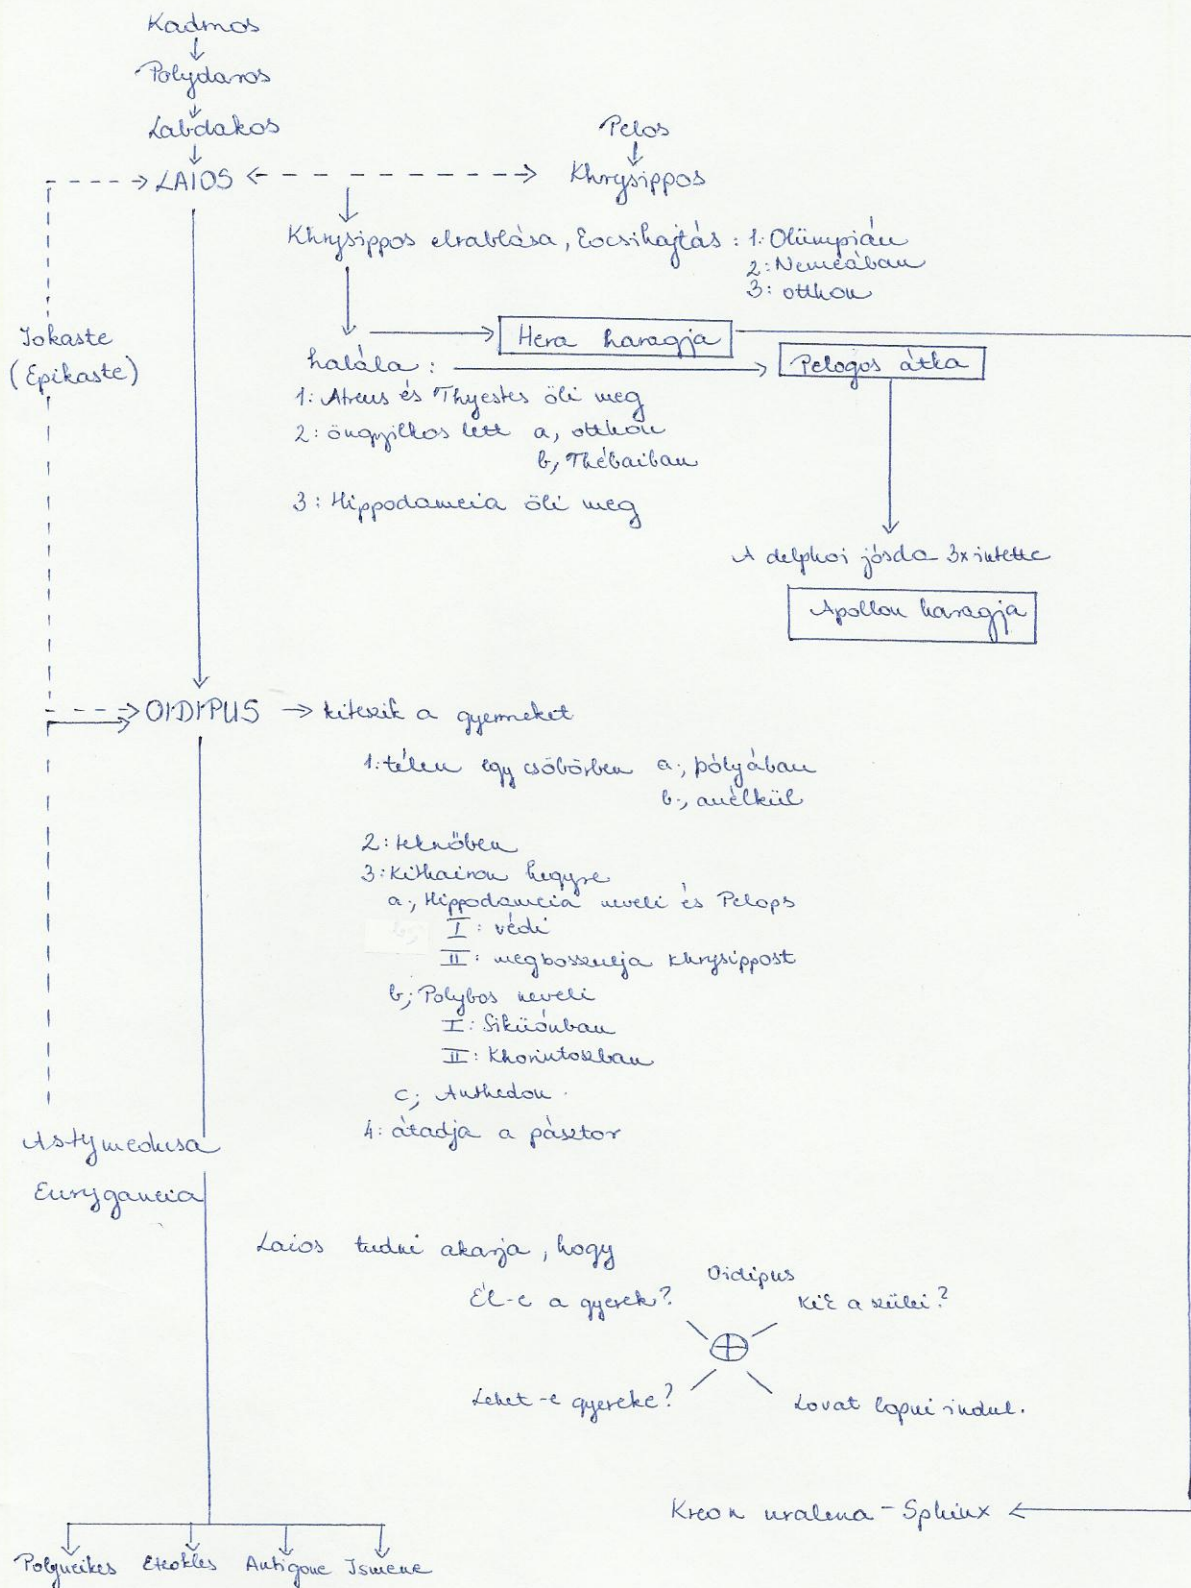 Kadmos
Polydaros
Labdakos
Pelos
LAIOS
Khrysippos
Khrysippos elrablása, kocsihajtás: 1: Olümpián
2: Nemeában
3: otthon
Iokaste
(Epikaste)
Hera haragja
halála:
Pelogos átka
1: Atreus és Thyestes öli meg
2: öngyilkos lett a, otthon
b, Thébaiban
3: Hippodameia öli meg
A delphoi jósda 3x intette
Apollon haragja
OIDIPUS → kiteszik a gyermeket
1: télen egy csöbörben a., pólyában
b., anélkül
2: teknőben
3: Kithairon hegyre
a., Hippodameia neveli és Pelops
I: védi
II: megbosszulja Khrysippost
b; Polybos neveli
I: Siküónban
II: Khorintoszban
c; Anthedon.
4: átadja a pásztor
Astymedusa
Euryganeia
Laios tudni akarja, hogy
Oidipus
Él-e a gyerek?
Kik a szülei?
Lehet-e gyereke?
Lovat lopni indul.
Kreon uralma - Sphinx
Polyneikes Eteokles Antigone Ismene